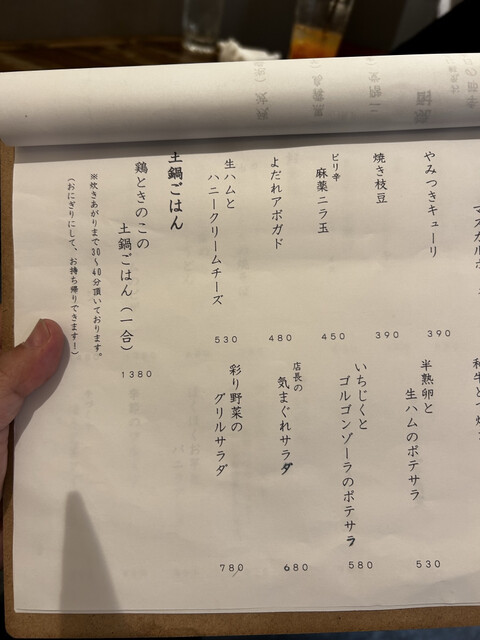 マスカルポ
やみつきキューリ
390
焼き枝豆
390
ピリ辛
麻薬ニラ玉
450
よだれアボガド
480
生ハムと
ハニークリームチーズ
530
半熟卵と
生ハムのポテサラ
530
いちじくと
ゴルゴンゾーラのポテサラ
580
店長の
気まぐれサラダ
680
彩り野菜の
グリルサラダ
780
土鍋ごはん
鶏ときのこの
土鍋ごはん（一合）
1380
※炊きあがりまで30～40分頂いております。
（おにぎりにして、お持ち帰りできます！）